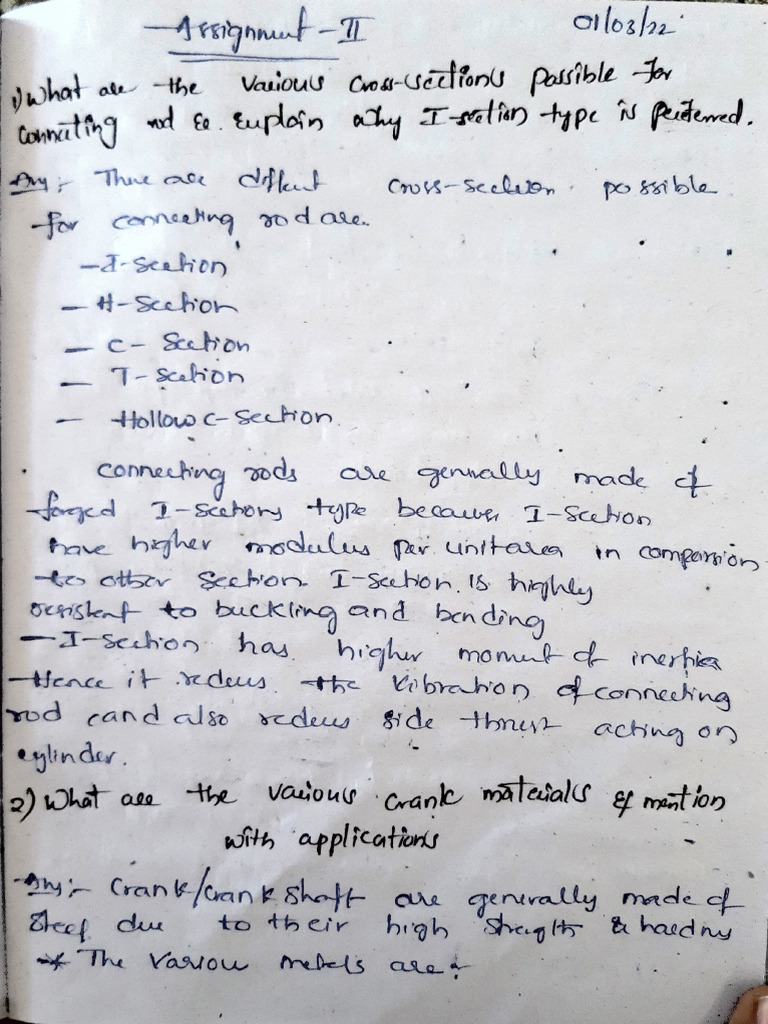 Assignment - II
01/03/22
1) What are the various cross-sections possible for
connecting rod &. Explain why I-section type is preferred.
Ans:- There are diffent cross-section possible
for connecting rod are.
- I-Section
- H-Section
- C- Section
- T-section
- Hollow C-Section.
connecting rods are genrally made of
forged I-sections type because, I-Section
have higher modulus per unit area in comparsion
to other section. I-section is highly
resistent to buckling and bending
- I-section has higher moment of inertia
Hence it reduces the vibration of connecting
rod (and also reduces side thrust acting on
cylinder.
2) What are the various crank materials & mention
with applications
Ans:- Crank/Crank Shaft are generally made of
Steel due to their high Strength & hardness
* The Various metals are:-